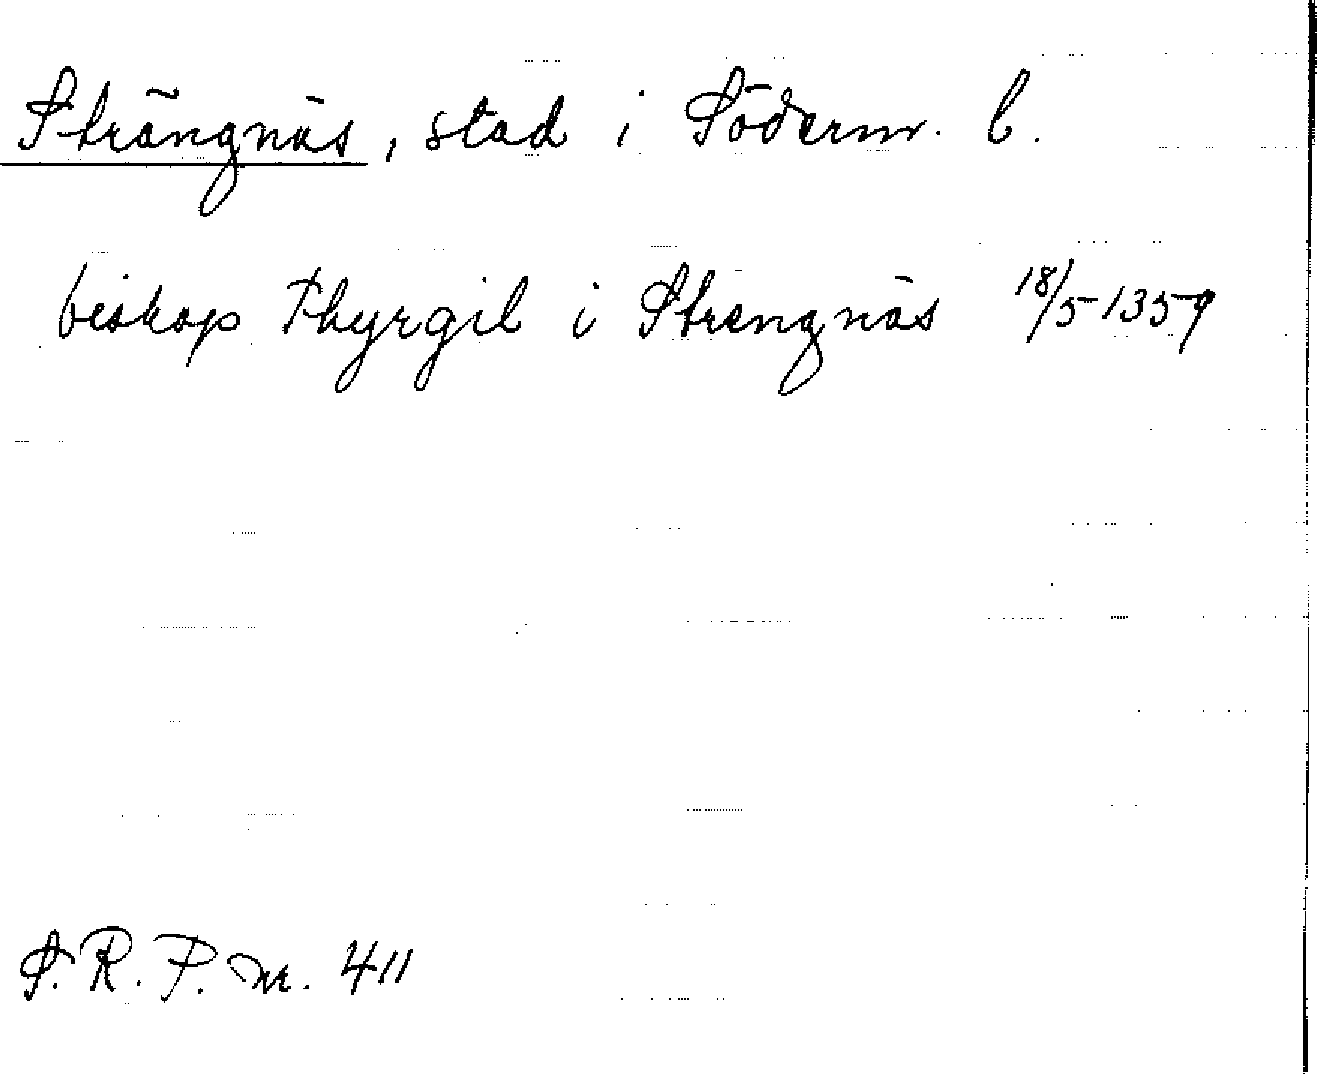 Strängnäs, stad i Söderm. l.
biskop Thyrgil i Strengnäs 18/5-1359
S.R.P. nr. 411